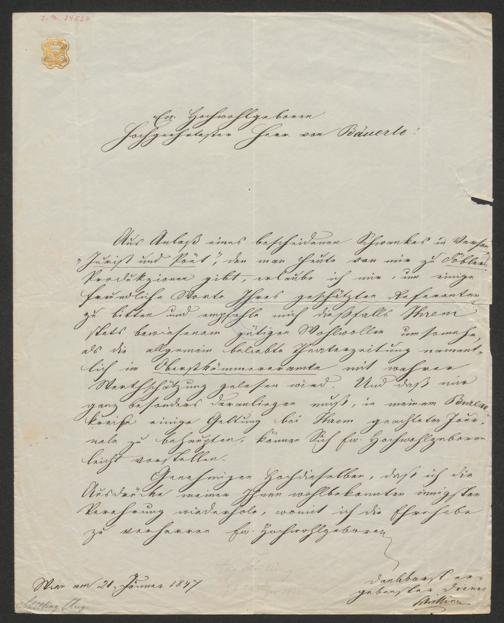 Ew. Hochwohlgeboren
Hochgeehrtester Herr von Bäuerle!
Aus Anlaß eines bescheidenen Schwankes in Versen
„Jurist und Poët“, den man heute von mir zu
Produkzionen gibt, erlaube ich mir, um einige
freundliche Worte Ihres geschätzten Referenten
zu bitten und empfehle mich dießfalls Ihrem
stets bewiesenen gütigen Wohlwollen umsomehr,
als die allgemein beliebte Theaterzeitung nament-
lich im Oberstkämmereramte mit wahrer
Werthschätzung gelesen wird. Und daß mir
ganz besonders daranliegen muß, in meinem
kreise einige Geltung bei Ihrem geachteten Jour-
nale zu behaupten, können Sich Ew. Hochwohlgeboren
leicht vorstellen.
Genehmigen Hochdieselben, daß ich die
Ausdrücke meiner Ihnen wohlbekannten innigsten
Verehrung wiederhole, womit ich die Ehre habe
zu verharren Ew. Hochwohlgeboren
Wien am 21. Jänner 1847
dankbarst er-
gebenster Diener